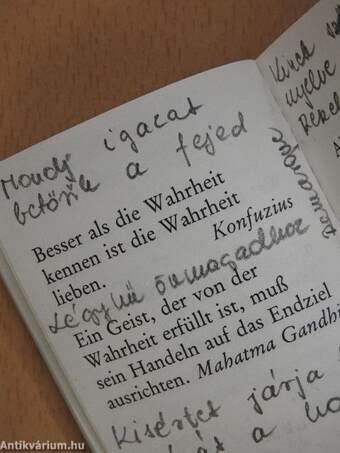 Mondj igazat
betörik a fejed
Besser als die Wahrheit
kennen ist die Wahrheit
lieben. Konfuzius
Légy hű önmagadhoz
Ein Geist, der von der
Wahrheit erfüllt ist, muß
sein Handeln auf das Endziel
ausrichten. Mahatma Gandhi
Kisértet járja
a
Kinek
nyelve
Antikvárium.hu